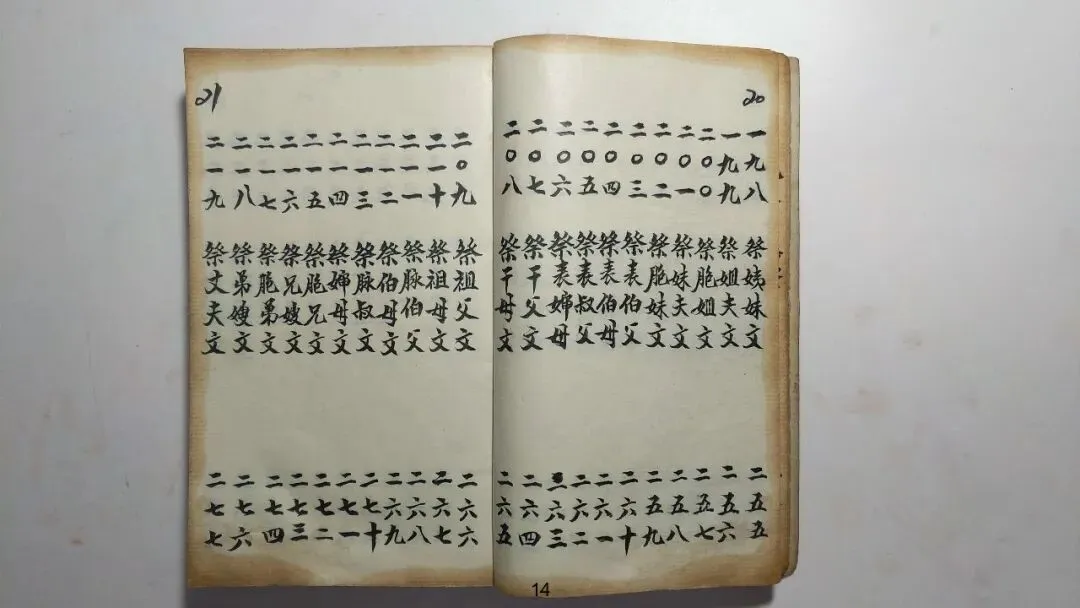 20
一九八 祭姨妹文 二五五
一九九 祭姐夫文 二五六
二〇〇 祭胞姐文 二五七
二〇一 祭妹夫文 二五八
二〇二 祭胞妹文 二五九
二〇三 祭表伯父 二六十
二〇四 祭表伯母 二六一
二〇五 祭表叔父 二六二
二〇六 祭表婶母 二六三
二〇七 祭干父文 二六四
二〇八 祭干母文 二六五
21
二〇九 祭祖父文 二六六
二一十 祭祖母文 二六七
二一一 祭脉伯父 二六八
二一二 祭伯母文 二六九
二一三 祭脉叔文 二七十
二一四 祭婶母文 二七一
二一五 祭胞兄文 二七二
二一六 祭兄嫂文 二七三
二一七 祭胞弟文 二七四
二一八 祭弟嫂文 二七六
二一九 祭丈夫文 二七七
14